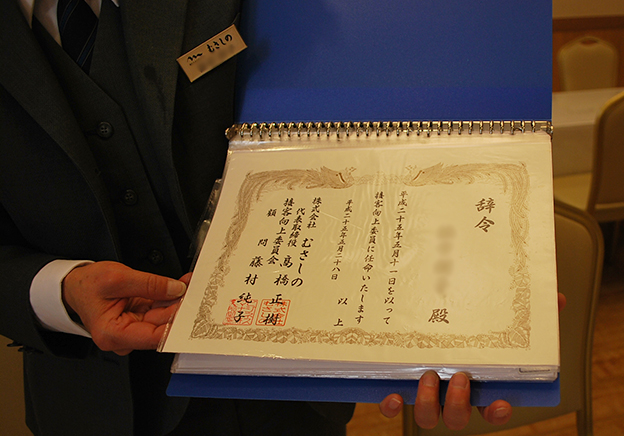 むさしの
辞令
殿
平成二十五年五月十一日を以って
接客向上委員に任命いたします
以上
平成二十五年五月二十八日
株式会社 むさしの
代表取締役 髙橋 正樹
接客向上委員会
顧問 藤村 純子